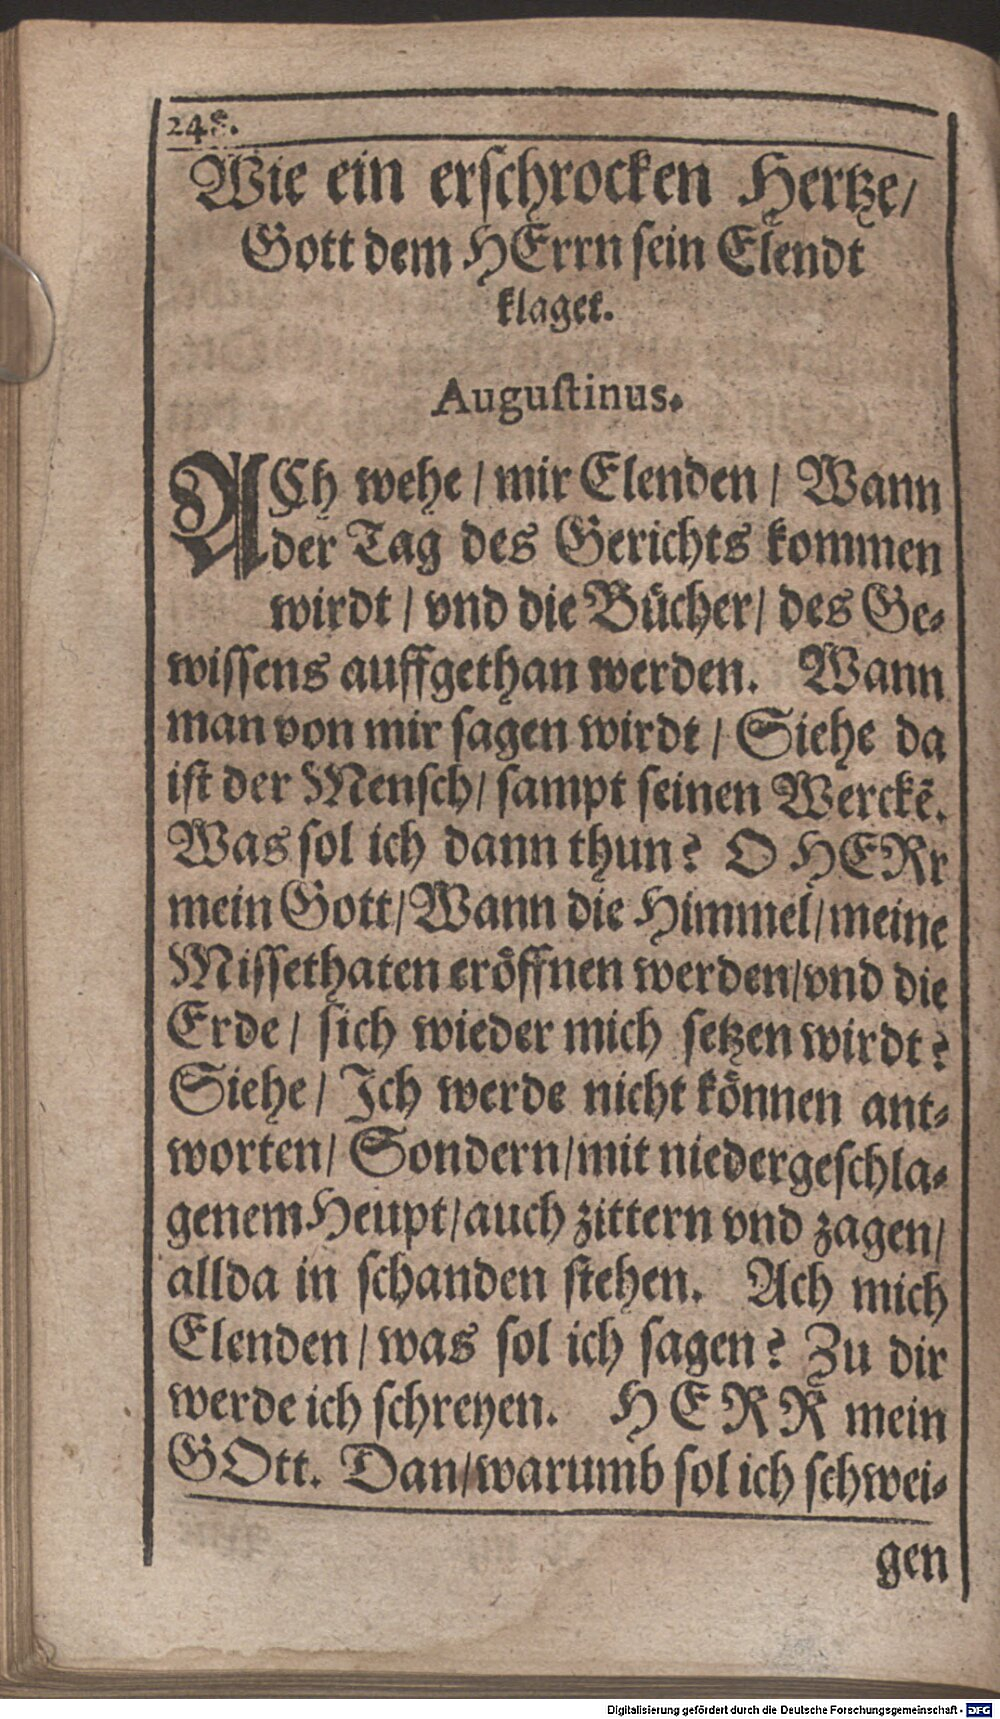 248.
Wie ein erschrocken Hertze/
Gott dem HErrn sein Elendt
klaget.
Augustinus.
ACh wehe / mir Elenden / Wann
der Tag des Gerichts kommen
wirdt / vnd die Bücher / des Ge-
wissens auffgethan werden. Wann
man von mir sagen wirdt / Siehe da
ist der Mensch / sampt seinen Werckē.
Was sol ich dann thun? O HERr
mein Gott / Wann die Himmel / meine
Missethaten eröffnen werden / vnd die
Erde / sich wieder mich setzen wirdt?
Siehe / Ich werde nicht können ant-
worten / Sondern / mit niedergeschla-
genem Heupt / auch zittern vnd zagen /
allda in schanden stehen. Ach mich
Elenden / was sol ich sagen? Zu dir
werde ich schreyen. HERR mein
GOtt. Dan / warumb sol ich schwei-
gen
Digitalisierung gefördert durch die Deutsche Forschungsgemeinschaft - DFG